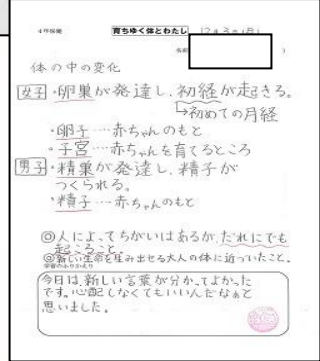 4年保健
育ちゆく体とわたし
12月3日(月)
名前
体の中の変化
女子・卵巣が発達し、初経が起きる。
↳初めての月経
・卵子…赤ちゃんのもと
・子宮…赤ちゃんを育てるところ
男子・精巣が発達し、精子が
つくられる。
・精子…赤ちゃんのもと
◎人によってちがいはあるが、だれにでも
起こること
◎新しい生命を生み出せる大人の体に近づいたこと。
学習のふりかえり
今日は、新しい言葉が分かってよかった
です。心配しなくてもいいんだなぁと
思いました。